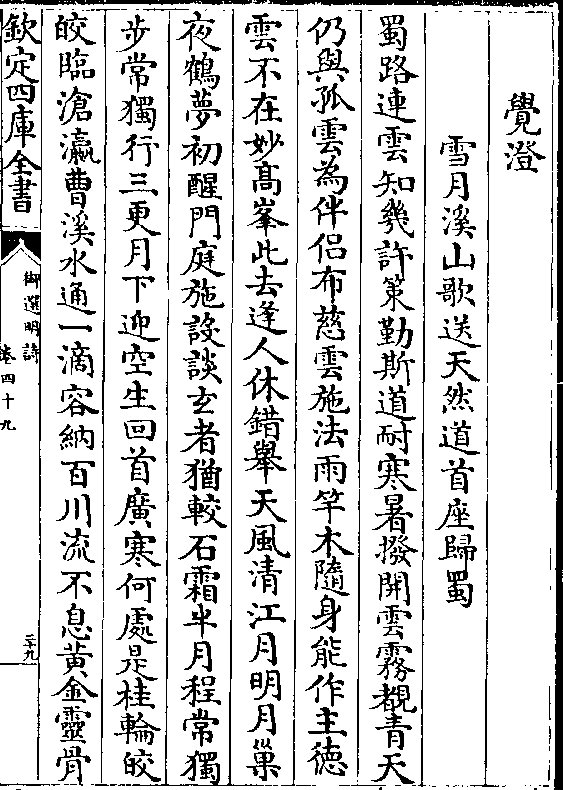 覺澄
雪月溪山歌送天然道首座歸蜀
蜀路連雲知幾許策勤斯道耐寒暑撥開雲霧覩青天
仍與孤雲為伴侶布慈雲施法雨竿木隨身能作主德
雲不在妙髙峯此去逢人休錯舉天風清江月明月巢
夜鶴夢初醒門庭施設談玄者猶較石霜半月程常獨
步常獨行三更月下迎空生回首廣寒何處是桂輪皎
皎臨滄瀛曹溪水通一滴容納百川流不息黄金靈骨
欽定四庫全書
御選明詩
卷四十九
三十九